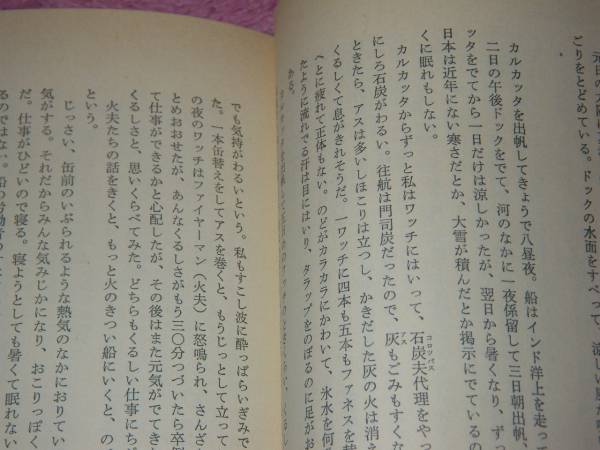 元日の太陽
ごりをとどめている。ドックの水面をすべって、涼しい風が
カルカッタを出帆してきょうで八昼夜。船はインド洋上を走って
二日の午後ドックをでて、河のなかに一夜係留して三日朝出帆、
ッタをでてから一日だけは涼しかったが、翌日から暑くなり、ずっ
日本は近年にない寒さだとか、大雪が積んだとか掲示にでているの
くに眠れもしない。
カルカッタからずっと私はワッチにはいって、石炭夫代理をやっ
コロッパス
にしろ石炭がわるい。往航は門司炭だったので、灰もごみもすくな
アス
ときたら、アスは多いしほこりは立つし、かきだした灰の火は消え
くるしくて息がきれそうだ。一ワッチに四本も五本もファネスを替
へとに疲れて正体もない。のどがカラカラにかわいて、氷水を何
たように流れでる汗は目にはいり、タラップをのぼるのに足がお
ある。
でも気持がわるいという。私もすこし波に酔っぱらいぎみで
た。一本缶替えをしてアスを巻くと、もうじっとして立って
の夜のワッチはファイヤーマン（火夫）に怒鳴られ、さんざ
とめおおせたが、あんなくるしさがもう三〇分つづいたら卒倒
て仕事ができるかと心配したが、その後はまた元気がでてき
くるしさと、思いくらべてみた。どちらもくるしい仕事にち
火夫たちの話をきくと、もっと火のきつい船にいくと、の
という。
じっさい、缶前のいぶられるような熱気のなかにおりてい
気がする。それだからみんな気みじかになり、おこりっぽく
だ。仕事がひどいので寝る。寝ようとしても暑くて眠れない
るのではない。船の労働者の